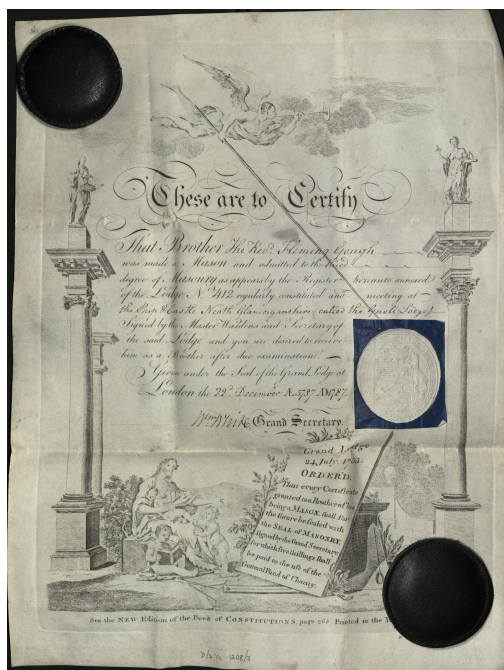 These are to Certify
That Brother The Revd. Fleming Gough
was made a Mason and admitted to the third
degree of Masonry as appears by the Register hereunto annexed
of the Lodge No. 412 regularly constituted and meeting at
the Ship & Castle Neath Glamorganshire, called the Gnoll Lodge
Signed by the Master Wardens and Secretary of
the said Lodge and you are desired to receive
him as a Brother after due examination.
Given under the Seal of the Grand Lodge at
London the 22d. December A.L. 5787 AD 1787.
Wm. White Grand Secretary.
Grand Lodge
24 July. 1755.
ORDER'D,
That every Certificate
granted to a Brother of his
being a MASON shall for
the future be sealed with
the SEAL of MASONRY,
& signed by the Grand Secretary
for which five shillings shall
be paid to the use of the
General Fund of Charity.
See the NEW Edition of the Book of CONSTITUTIONS, page 266 Printed in the